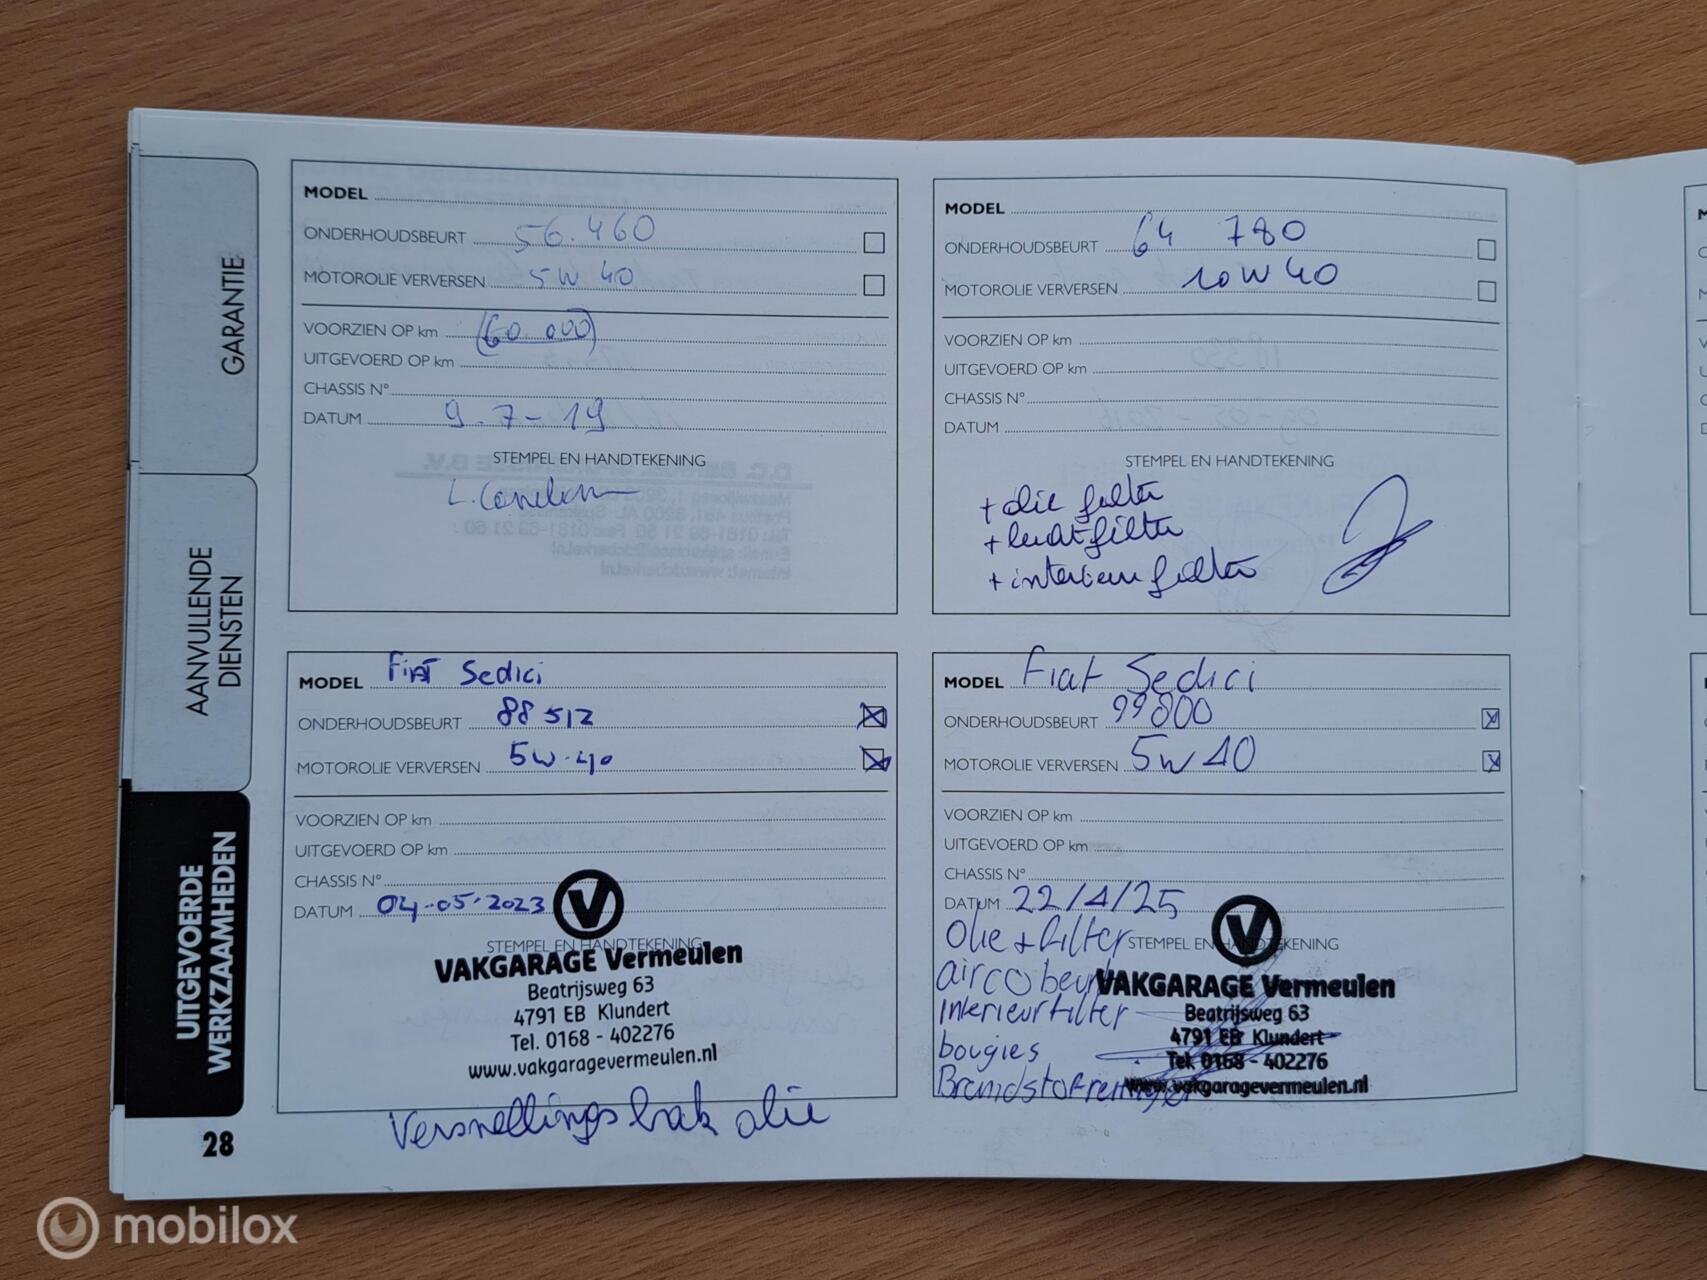 GARANTIE
AANVULLENDE
DIENSTEN
UITGEVOERDE
WERKZAAMHEDEN
MODEL
ONDERHOUDSBEURT 56.460
MOTOROLIE VERVERSEN 5W40
VOORZIEN OP km (60.000)
UITGEVOERD OP km
CHASSIS N°
DATUM 9-7-19
STEMPEL EN HANDTEKENING
MODEL
ONDERHOUDSBEURT 64 780
MOTOROLIE VERVERSEN 10W40
VOORZIEN OP km
UITGEVOERD OP km
CHASSIS N°
DATUM
STEMPEL EN HANDTEKENING
+ olie filter
+ luchtfilter
+ interieur filter
MODEL Fiat Sedici
ONDERHOUDSBEURT 88512
MOTOROLIE VERVERSEN 5W-40
VOORZIEN OP km
UITGEVOERD OP km
CHASSIS N°
DATUM 04-05-2023
STEMPEL EN HANDTEKENING
VAKGARAGE Vermeulen
Beatrijsweg 63
4791 EB Klundert
Tel. 0168 - 402276
www.vakgaragevermeulen.nl
Versnellingsbak olie
MODEL Fiat Sedici
ONDERHOUDSBEURT 99800
MOTOROLIE VERVERSEN 5W40
VOORZIEN OP km
UITGEVOERD OP km
CHASSIS N°
DATUM 22/4/25
Olie + filter STEMPEL EN HANDTEKENING
airco beurt VAKGARAGE Vermeulen
Interieurfilter Beatrijsweg 63
bougies 4791 EB Klundert
Tel. 0168 - 402276
Brandstofreiniger www.vakgaragevermeulen.nl
28
mobilox